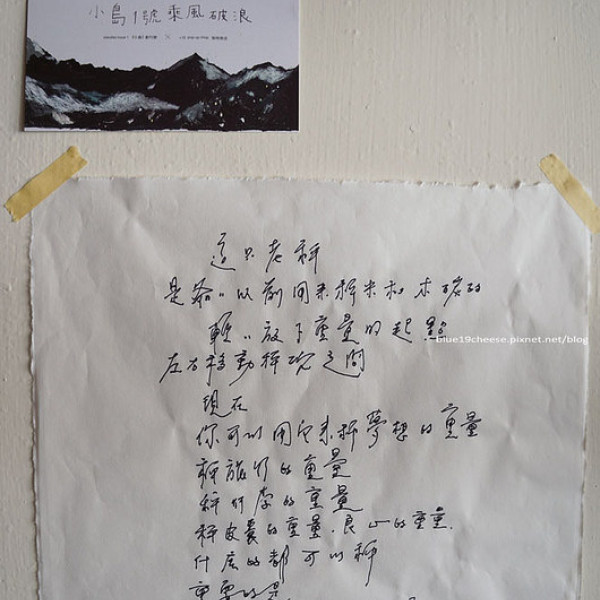 小島1號乘風破浪
這只老秤
是爺爺以前用來秤米和木碳的
輕輕放下重量的起點
左右移動秤砣之間
blue19cheese.pixnet.net/blog
現在
你可以用它來秤夢想的重量
秤旅行的重量
秤行李的重量
秤皮囊的重量、良心的重量.
什麼的都可以秤
重要的是